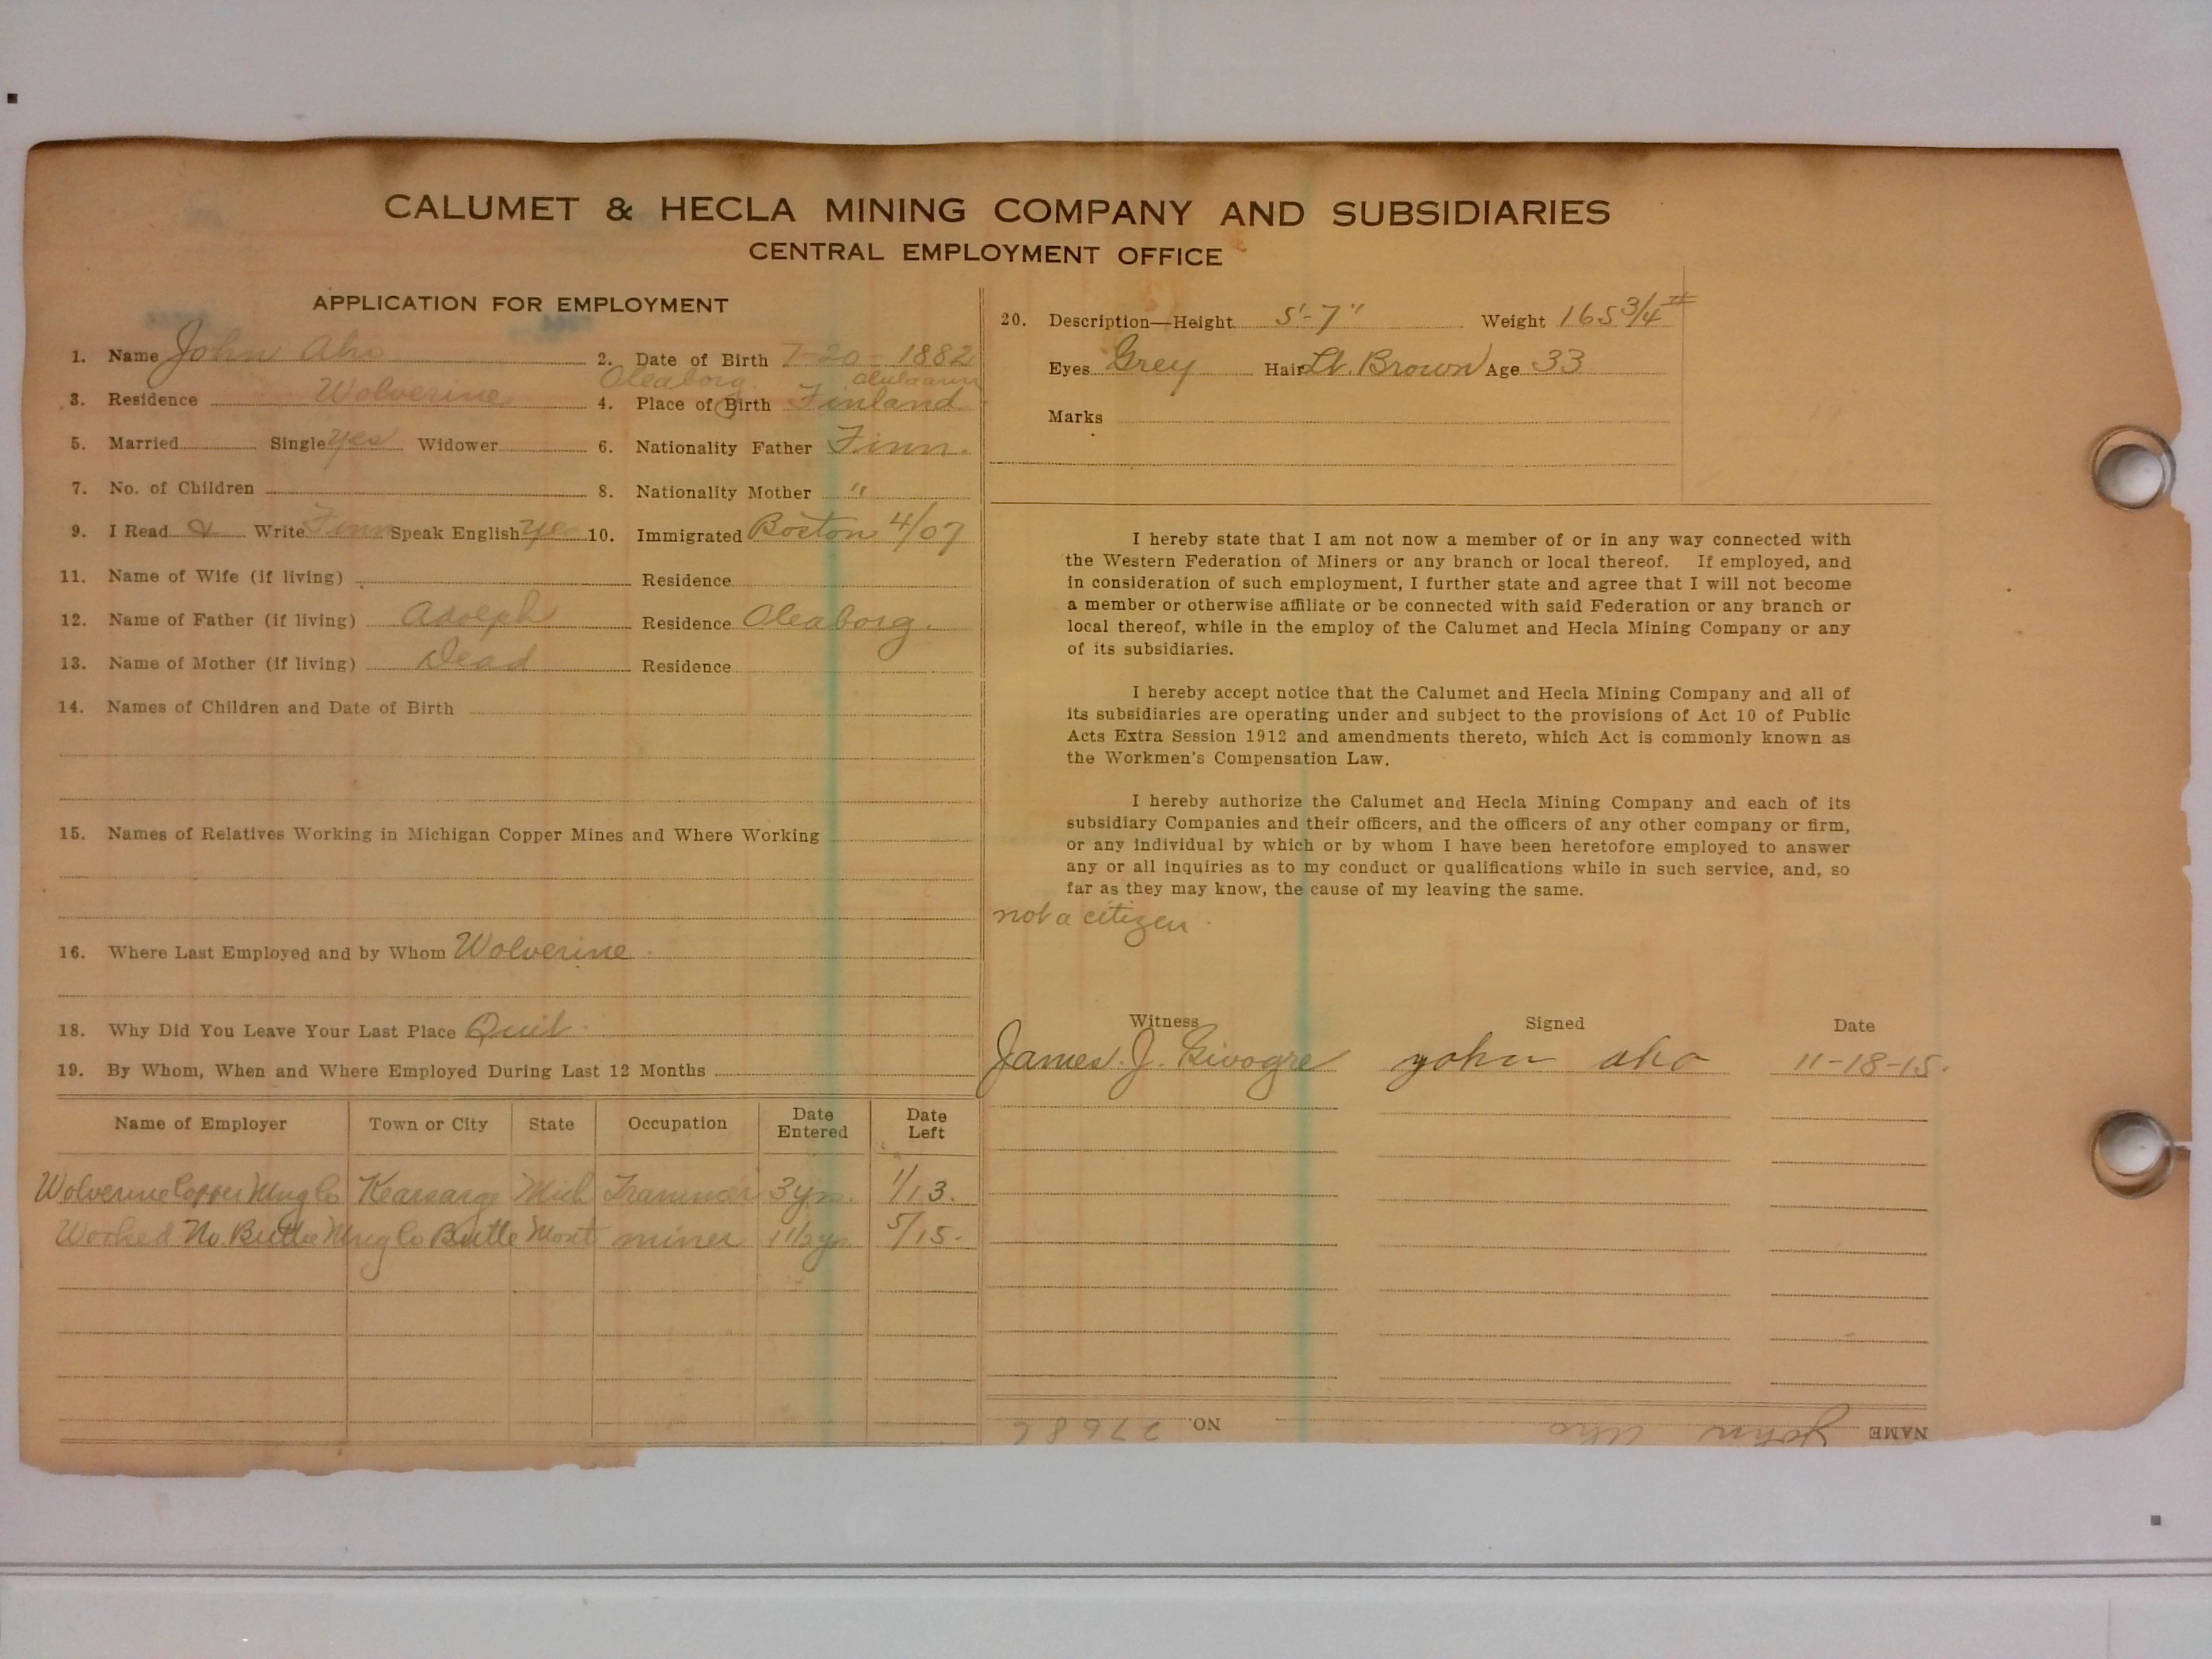 CALUMET & HECLA MINING COMPANY AND SUBSIDIARIES
CENTRAL EMPLOYMENT OFFICE
APPLICATION FOR EMPLOYMENT
1. Name John Aho 2. Date of Birth 7-20-1882
Oleaborg
3. Residence Wolverine 4. Place of Birth Finland
5. Married Single yes Widower 6. Nationality Father Finn.
7. No. of Children 8. Nationality Mother "
9. I Read & Write Finn Speak English yes 10. Immigrated Boston 4/07
11. Name of Wife (if living) Residence
12. Name of Father (if living) Adolph Residence Oleaborg.
13. Name of Mother (if living) Dead Residence
14. Names of Children and Date of Birth
15. Names of Relatives Working in Michigan Copper Mines and Where Working
16. Where Last Employed and by Whom Wolverine
18. Why Did You Leave Your Last Place Quit
19. By Whom, When and Where Employed During Last 12 Months
Name of Employer Town or City State Occupation Date Entered Date Left
Wolverine Copper Mng Co Kearsarge Mich Trammer 3 yrs. 1/13.
Worked No. Butte Mng Co Butte Mont miner 1 1/2 yrs 5/15.
20. Description—Height 5'-7" Weight 165 3/4 #
Eyes Grey Hair Lt. Brown Age 33
Marks
I hereby state that I am not now a member of or in any way connected with
the Western Federation of Miners or any branch or local thereof. If employed, and
in consideration of such employment, I further state and agree that I will not become
a member or otherwise affiliate or be connected with said Federation or any branch or
local thereof, while in the employ of the Calumet and Hecla Mining Company or any
of its subsidiaries.
I hereby accept notice that the Calumet and Hecla Mining Company and all of
its subsidiaries are operating under and subject to the provisions of Act 10 of Public
Acts Extra Session 1912 and amendments thereto, which Act is commonly known as
the Workmen's Compensation Law.
I hereby authorize the Calumet and Hecla Mining Company and each of its
subsidiary Companies and their officers, and the officers of any other company or firm,
or any individual by which or by whom I have been heretofore employed to answer
any or all inquiries as to my conduct or qualifications while in such service, and, so
far as they may know, the cause of my leaving the same.
not a citizen.
Witness Signed Date
James. J. yohn aho 11-18-15.
NAME John Aho NO. 27686